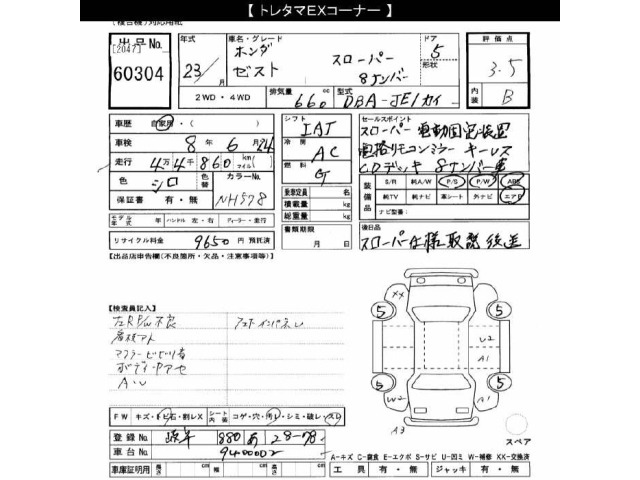 【 トレタマEXコーナー 】
出品No.
[2047]
60304
年式
23/
車名・グレード
ホンダ
ゼスト
スローパー
8ナンバー
ドア
5
形状
評価点
3.5
内装
B
2WD・4WD
排気量
660
cc
型式
DBA-JE1カイ
車歴
自家用・( )
車検
8年 6月24
走行
4万4千860
km
マイル
色
シロ
色替
カラーNo.
NH578
保証書
有・無
モデル年式
年
ハンドル
左・右
ディーラー・並行
リサイクル料金
9650円 預託済
シフト
IAT
冷房
AC
燃料
G
乗車定員
名
積載量
kg
総重量
kg
書類期限
月 日
セールスポイント
スローパー 電動固定装置
電格リモコンミラー キーレス
CDデッキ 8ナンバー車
装備品
S/R
純A/W
P/S
P/W
ABS
純TV
純ナビ
革シート
外ナビ
エアB
ナビ型番:
後日品
スローパー仕様 取説 後送
【出品店申告欄(不良箇所・欠品・注意事項等)】
【検査員記入】
左RP/W不良
看板アト
ボディ
A・U
FW
キズ・トビ石・割レX
シート内装
コゲ・穴・汚レ・シミ・破レ・スレ
登録No.
880 あ 28-78
車台No.
9400002
車庫証明用
長さ
cm
幅
cm
高さ
cm
XX
5
5
5
5
U2
A1
W2
A1
A3
スペア
A-キズ C-腐食 E-エクボ S-サビ U-凹ミ W-補修 XX-交換済
工具
有・無
ジャッキ
有・無